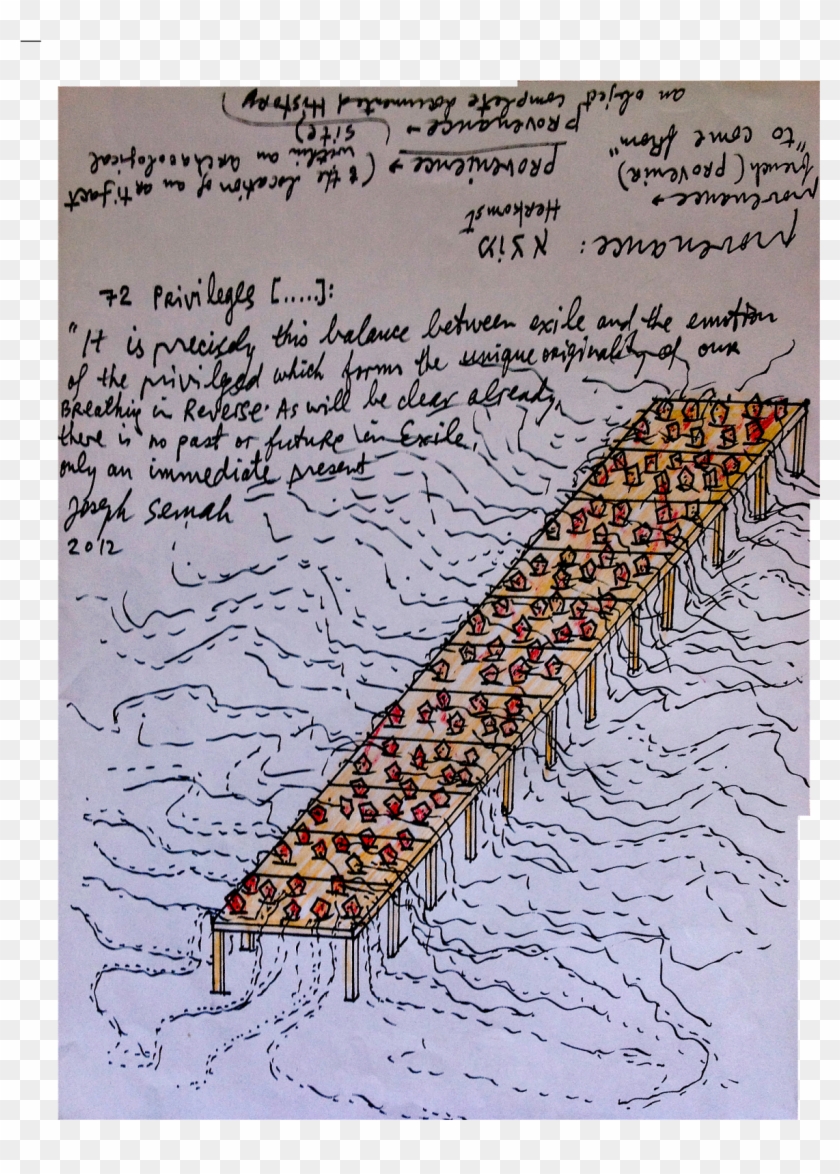 provenance: מוצא
Herkomst
provenance →
french (provenir)
"to come from"
provenience → (& the location of an artifact
within an archaeological
site)
provenance → (
an object complete documented History)
72 Privileges [.....]:
"It is precisely this balance between exile and the emotion
of the privilged which forms the unique originality of our
Breathing in Reverse. As will be clear already,
there is no past or future in Exile,
only an immediate present
Joseph Semah
2012